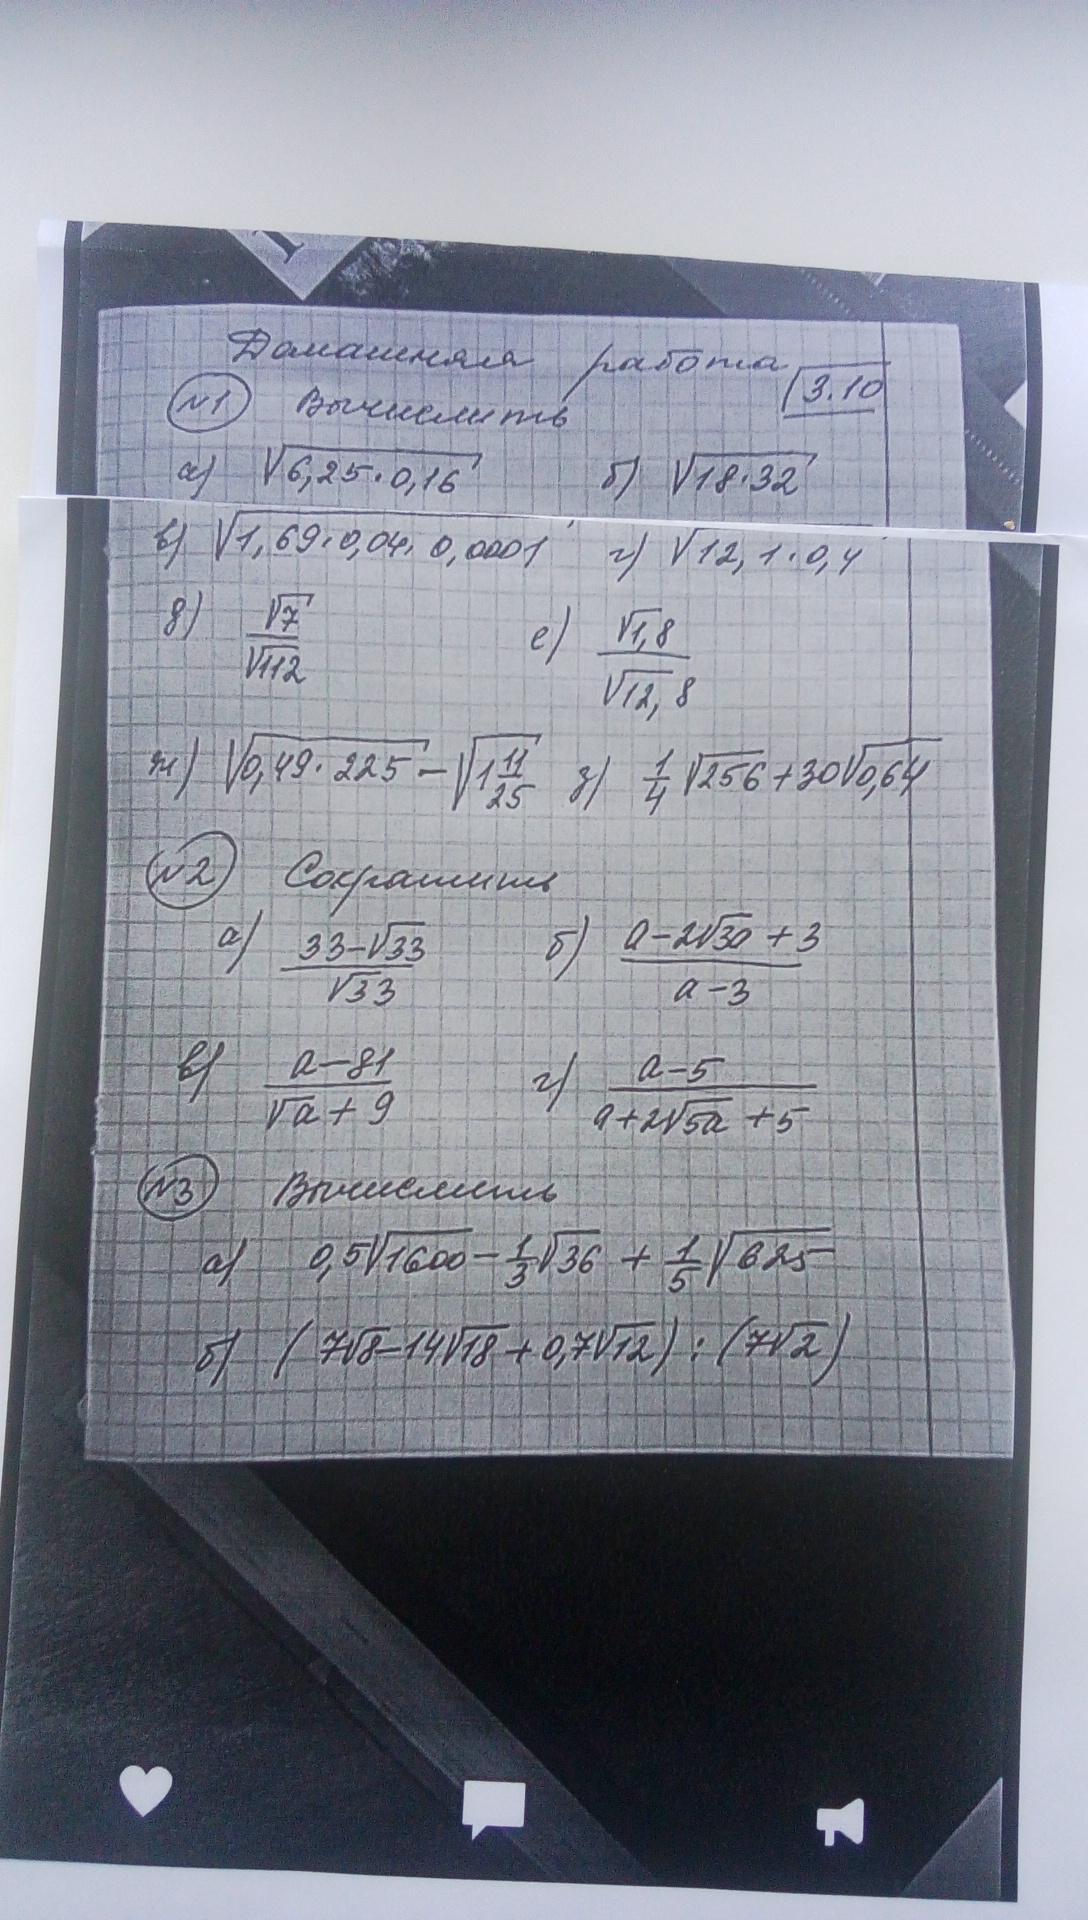 Домашняя работа
13.10
№1 Вычислить
а) √6,25·0,16 б) √18·32
в) √1,69·0,04·0,0001 г) √12,1·0,4
д) √7/√112 е) √1,8/√12,8
ж) √0,49·225 - √1 11/25 з) 1/4 √256 + 30√0,64
№2 Сократить
а) (33-√33)/√33 б) (a-2√3a+3)/(a-3)
в) (a-81)/(√a+9) г) (a-5)/(a+2√5a+5)
№3 Вычислить
а) 0,5√1600 - 1/3 √36 + 1/5 √625
б) (7√8-14√18+0,7√12) : (7√2)